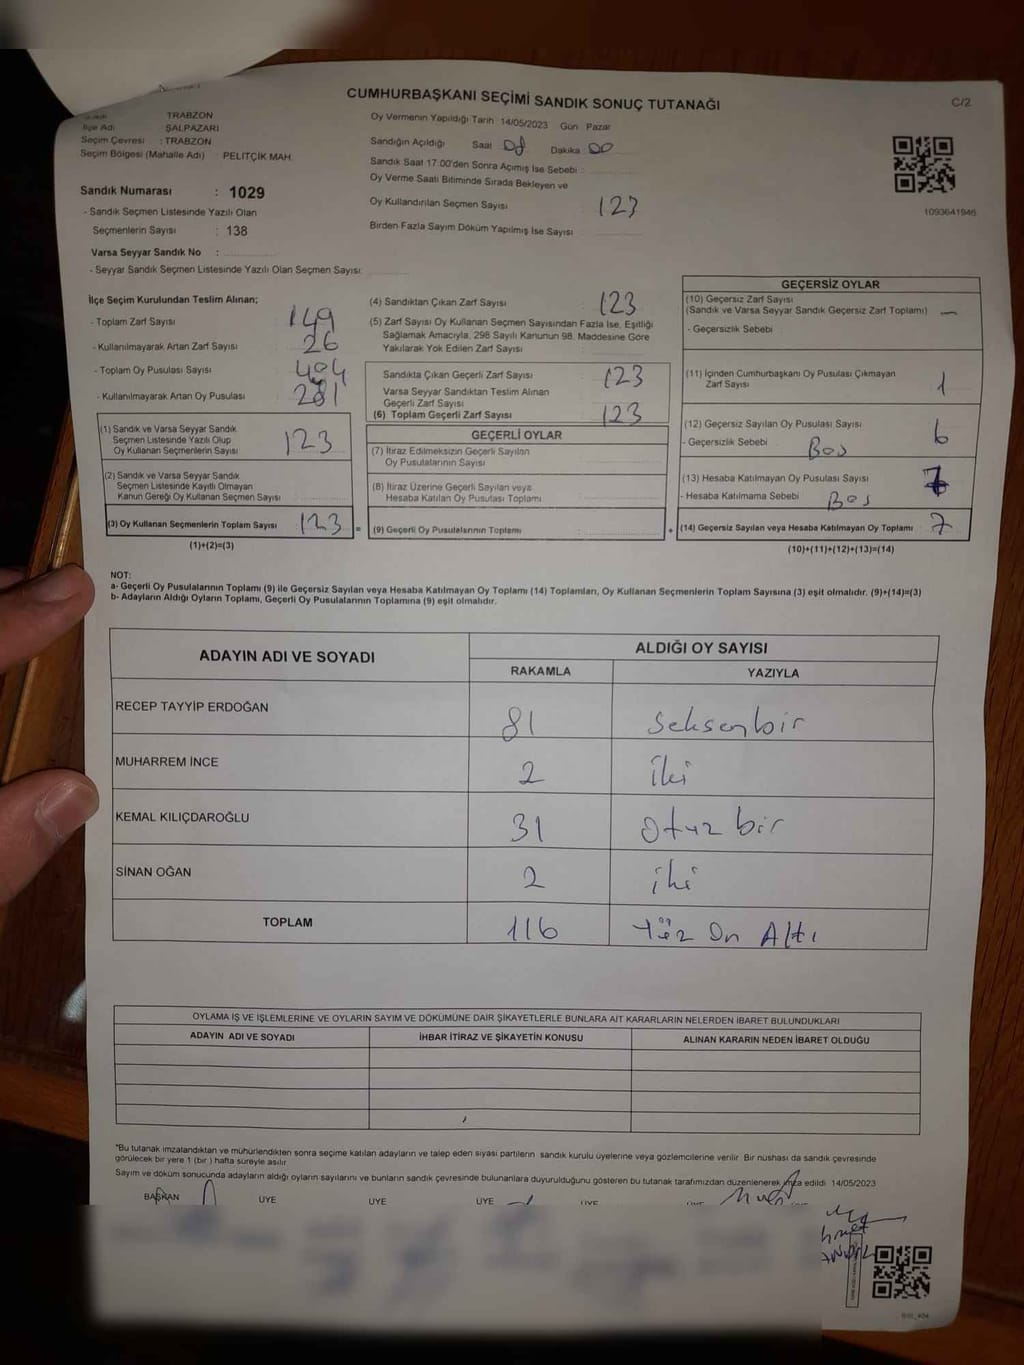 CUMHURBAŞKANI SEÇİMİ SANDIK SONUÇ TUTANAĞI
C/2
TRABZON
İlçe Adı : ŞALPAZARI
Seçim Çevresi : TRABZON
Seçim Bölgesi (Mahalle Adı) : PELİTÇİK MAH.
Sandık Numarası : 1029
- Sandık Seçmen Listesinde Yazılı Olan
Seçmenlerin Sayısı : 138
Varsa Seyyar Sandık No :
- Seyyar Sandık Seçmen Listesinde Yazılı Olan Seçmen Sayısı:
Oy Vermenin Yapıldığı Tarih: 14/05/2023 Gün: Pazar
Sandığın Açıldığı Saat 08 Dakika : 00
Sandık Saat 17:00'den Sonra Açımış İse Sebebi :
Oy Verme Saati Bitiminde Sırada Bekleyen ve
Oy Kullandırılan Seçmen Sayısı : 123
Birden Fazla Sayım Döküm Yapılmış İse Sayısı :
1093641946
İlçe Seçim Kurulundan Teslim Alınan;
- Toplam Zarf Sayısı : 149
- Kullanılmayarak Artan Zarf Sayısı : 26
- Toplam Oy Pusulası Sayısı : 404
- Kullanılmayarak Artan Oy Pusulası : 281
(1) Sandık ve Varsa Seyyar Sandık
Seçmen Listesinde Yazılı Olup
Oy Kullanan Seçmenlerin Sayısı : 123
(2) Sandık ve Varsa Seyyar Sandık
Seçmen Listesinde Kayıtlı Olmayan
Kanun Gereği Oy Kullanan Seçmen Sayısı :
(3) Oy Kullanan Seçmenlerin Toplam Sayısı : 123
(1)+(2)=(3)
(4) Sandıktan Çıkan Zarf Sayısı : 123
(5) Zarf Sayısı Oy Kullanan Seçmen Sayısından Fazla İse, Eşitliği
Sağlamak Amacıyla, 298 Sayılı Kanunun 98. Maddesine Göre
Yakılarak Yok Edilen Zarf Sayısı :
Sandıkta Çıkan Geçerli Zarf Sayısı : 123
Varsa Seyyar Sandıktan Teslim Alınan
Geçerli Zarf Sayısı
(6) Toplam Geçerli Zarf Sayısı : 123
GEÇERLİ OYLAR
(7) İtiraz Edilmeksizin Geçerli Sayılan
Oy Pusulalarının Sayısı
(8) İtiraz Üzerine Geçerli Sayılan veya
Hesaba Katılan Oy Pusulası Toplamı
= (9) Geçerli Oy Pusulalarının Toplamı : +
GEÇERSİZ OYLAR
(10) Geçersiz Zarf Sayısı
(Sandık ve Varsa Seyyar Sandık Geçersiz Zarf Toplamı) : —
- Geçersizlik Sebebi
(11) İçinden Cumhurbaşkanı Oy Pusulası Çıkmayan
Zarf Sayısı 1
(12) Geçersiz Sayılan Oy Pusulası Sayısı : 6
- Geçersizlik Sebebi Boş
(13) Hesaba Katılmayan Oy Pusulası Sayısı :
- Hesaba Katılmama Sebebi : Boş
(14) Geçersiz Sayılan veya Hesaba Katılmayan Oy Toplamı : 7
(10)+(11)+(12)+(13)=(14)
NOT:
a- Geçerli Oy Pusulalarının Toplamı (9) ile Geçersiz Sayılan veya Hesaba Katılmayan Oy Toplamı (14) Toplamları, Oy Kullanan Seçmenlerin Toplam Sayısına (3) eşit olmalıdır. (9)+(14)=(3)
b- Adayların Aldığı Oyların Toplamı, Geçerli Oy Pusulalarının Toplamına (9) eşit olmalıdır.
ADAYIN ADI VE SOYADI ALDIĞI OY SAYISI
RAKAMLA YAZIYLA
RECEP TAYYİP ERDOĞAN 81 Seksenbir
MUHARREM İNCE 2 İki
KEMAL KILIÇDAROĞLU 31 Otuz bir
SİNAN OĞAN 2 iki
TOPLAM 116 Yüz On Altı
OYLAMA İŞ VE İŞLEMLERİNE VE OYLARIN SAYIM VE DÖKÜMÜNE DAİR ŞİKAYETLERLE BUNLARA AİT KARARLARIN NELERDEN İBARET BULUNDUKLARI
ADAYIN ADI VE SOYADI İHBAR İTİRAZ VE ŞİKAYETİN KONUSU ALINAN KARARIN NEDEN İBARET OLDUĞU
*Bu tutanak imzalandıktan ve mühürlendikten sonra seçime katılan adayların ve talep eden siyasi partilerin sandık kurulu üyelerine veya gözlemcilerine verilir. Bir nüshası da sandık çevresinde
görülecek bir yere 1 (bir) hafta süreyle asılır
Sayım ve döküm sonucunda adayların aldığı oyların sayılarını ve bunların sandık çevresinde bulunanlara duyurulduğunu gösteren bu tutanak tarafımızdan düzenlenerek imza edildi 14/05/2023
BAŞKAN ÜYE ÜYE ÜYE ÜYE